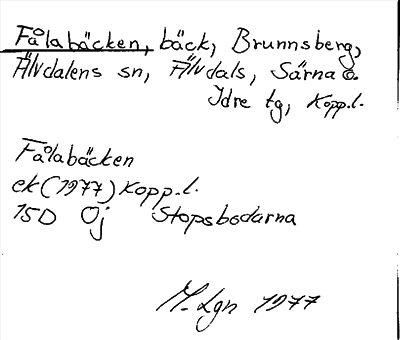 Fålabäcken, bäck, Brunnsberg,
Älvdalens sn, Älvdals, Särna o.
Idre tg, Kopp.l.
Fålabäcken
ek (1977) Kopp.l.
15D Öj Stopsbodarna
M. Lgn 1977